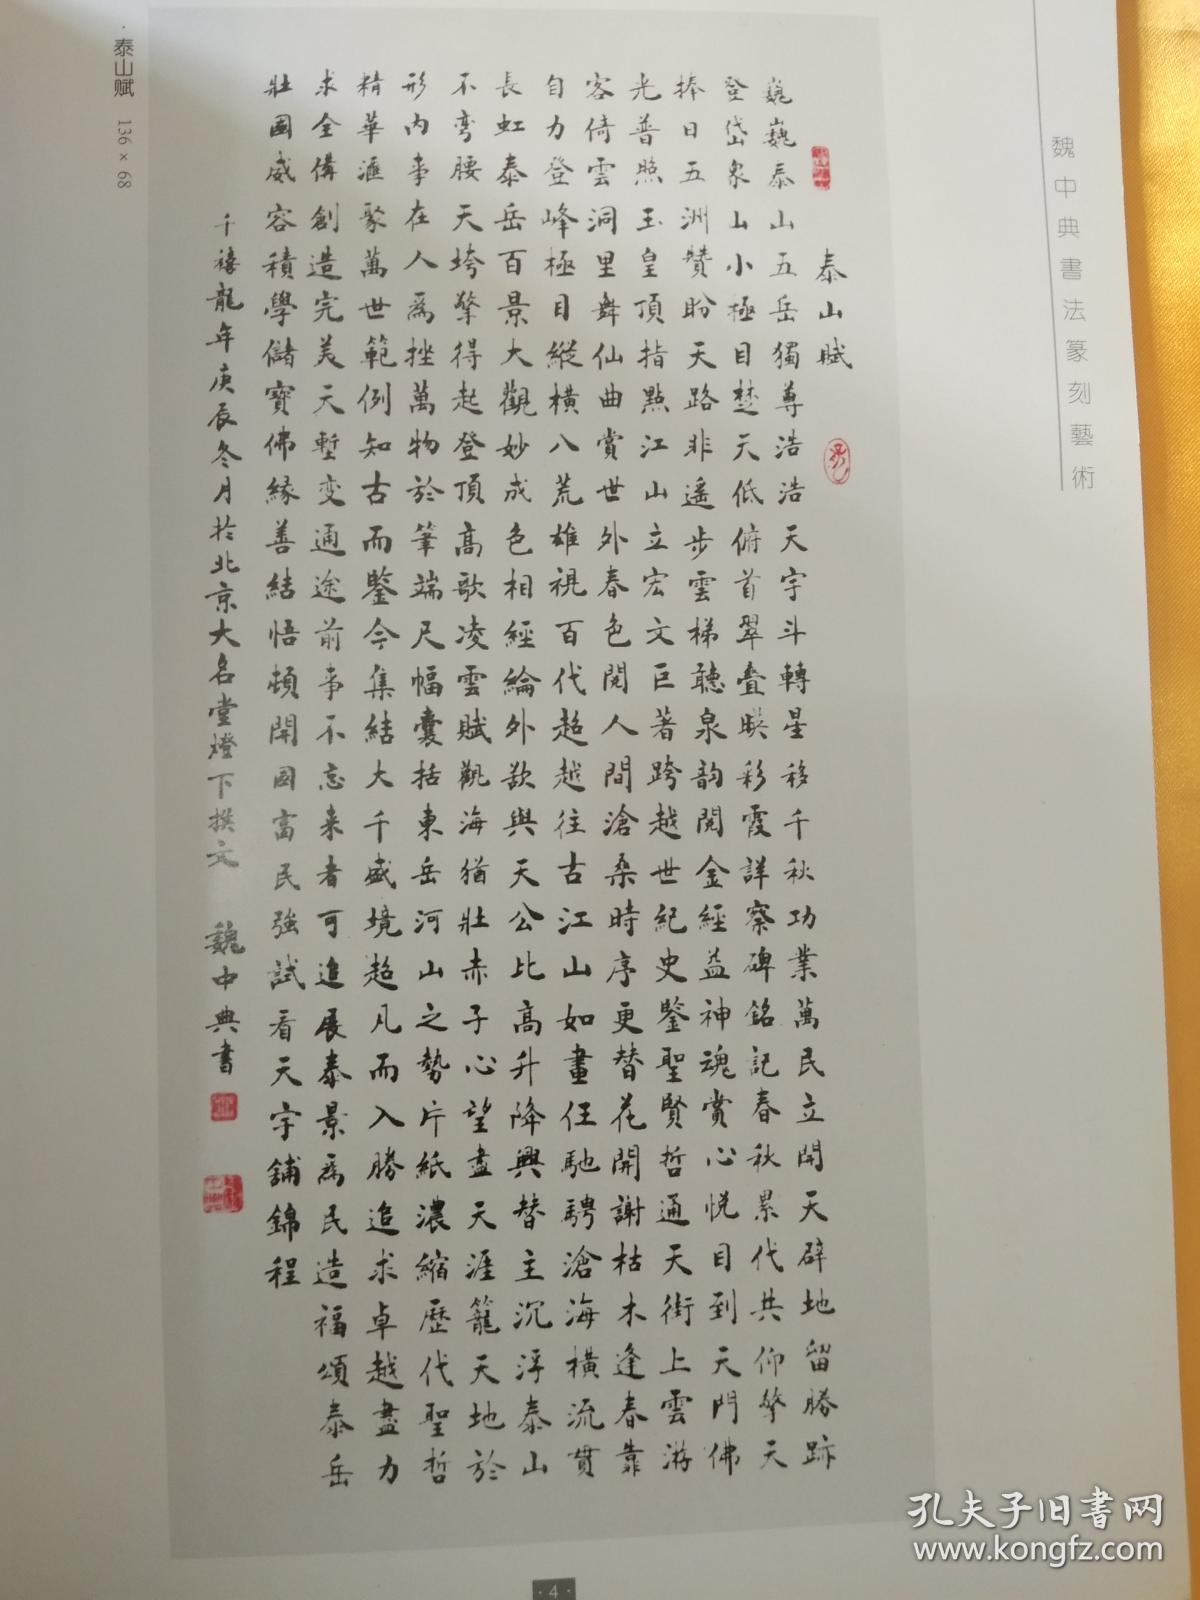 魏中典書法篆刻藝術
泰山賦
巍巍泰山五岳獨尊浩浩天宇斗轉星移千秋功業萬民立開天辟地留勝跡
登岱眾山小極目楚天低俯首翠疊映彩霞詳察碑銘記春秋累代共仰擎天
捧日五洲贊盼天路非遥步雲梯聽泉韵閱金經益神魂賞心悦目到天門佛
光普照玉皇頂指點江山立宏文巨著跨越世紀史鑒聖賢哲通天街上雲游
客倚雲洞里舞仙曲賞世外春色閱人間滄桑時序更替花開謝枯木逢春靠
自力登峰極目縱横八荒雄視百代超越往古江山如畫任馳騁滄海横流貫
長虹泰岳百景大觀妙成色相經綸外欲與天公比高升降興替主沉浮泰山
不彎腰天垮擎得起登頂高歌凌雲賦觀海猶壯赤子心望盡天涯籠天地於
形内事在人爲挫萬物於筆端尺幅囊括東岳河山之勢片紙濃縮歷代聖哲
精華滙聚萬世範例知古而鑒今集結大千盛境超凡而入勝追求卓越盡力
求全備創造完美天塹变通途前事不忘来者可追展泰景爲民造福頌泰岳
壯國威容積學儲寶佛緣善結悟頓開国富民強試看天宇舖錦程
千禧龍年庚辰冬月於北京大名堂燈下撰文 魏中典書
·泰山赋 136×68
·4·
孔夫子旧書网
www.kongfz.com